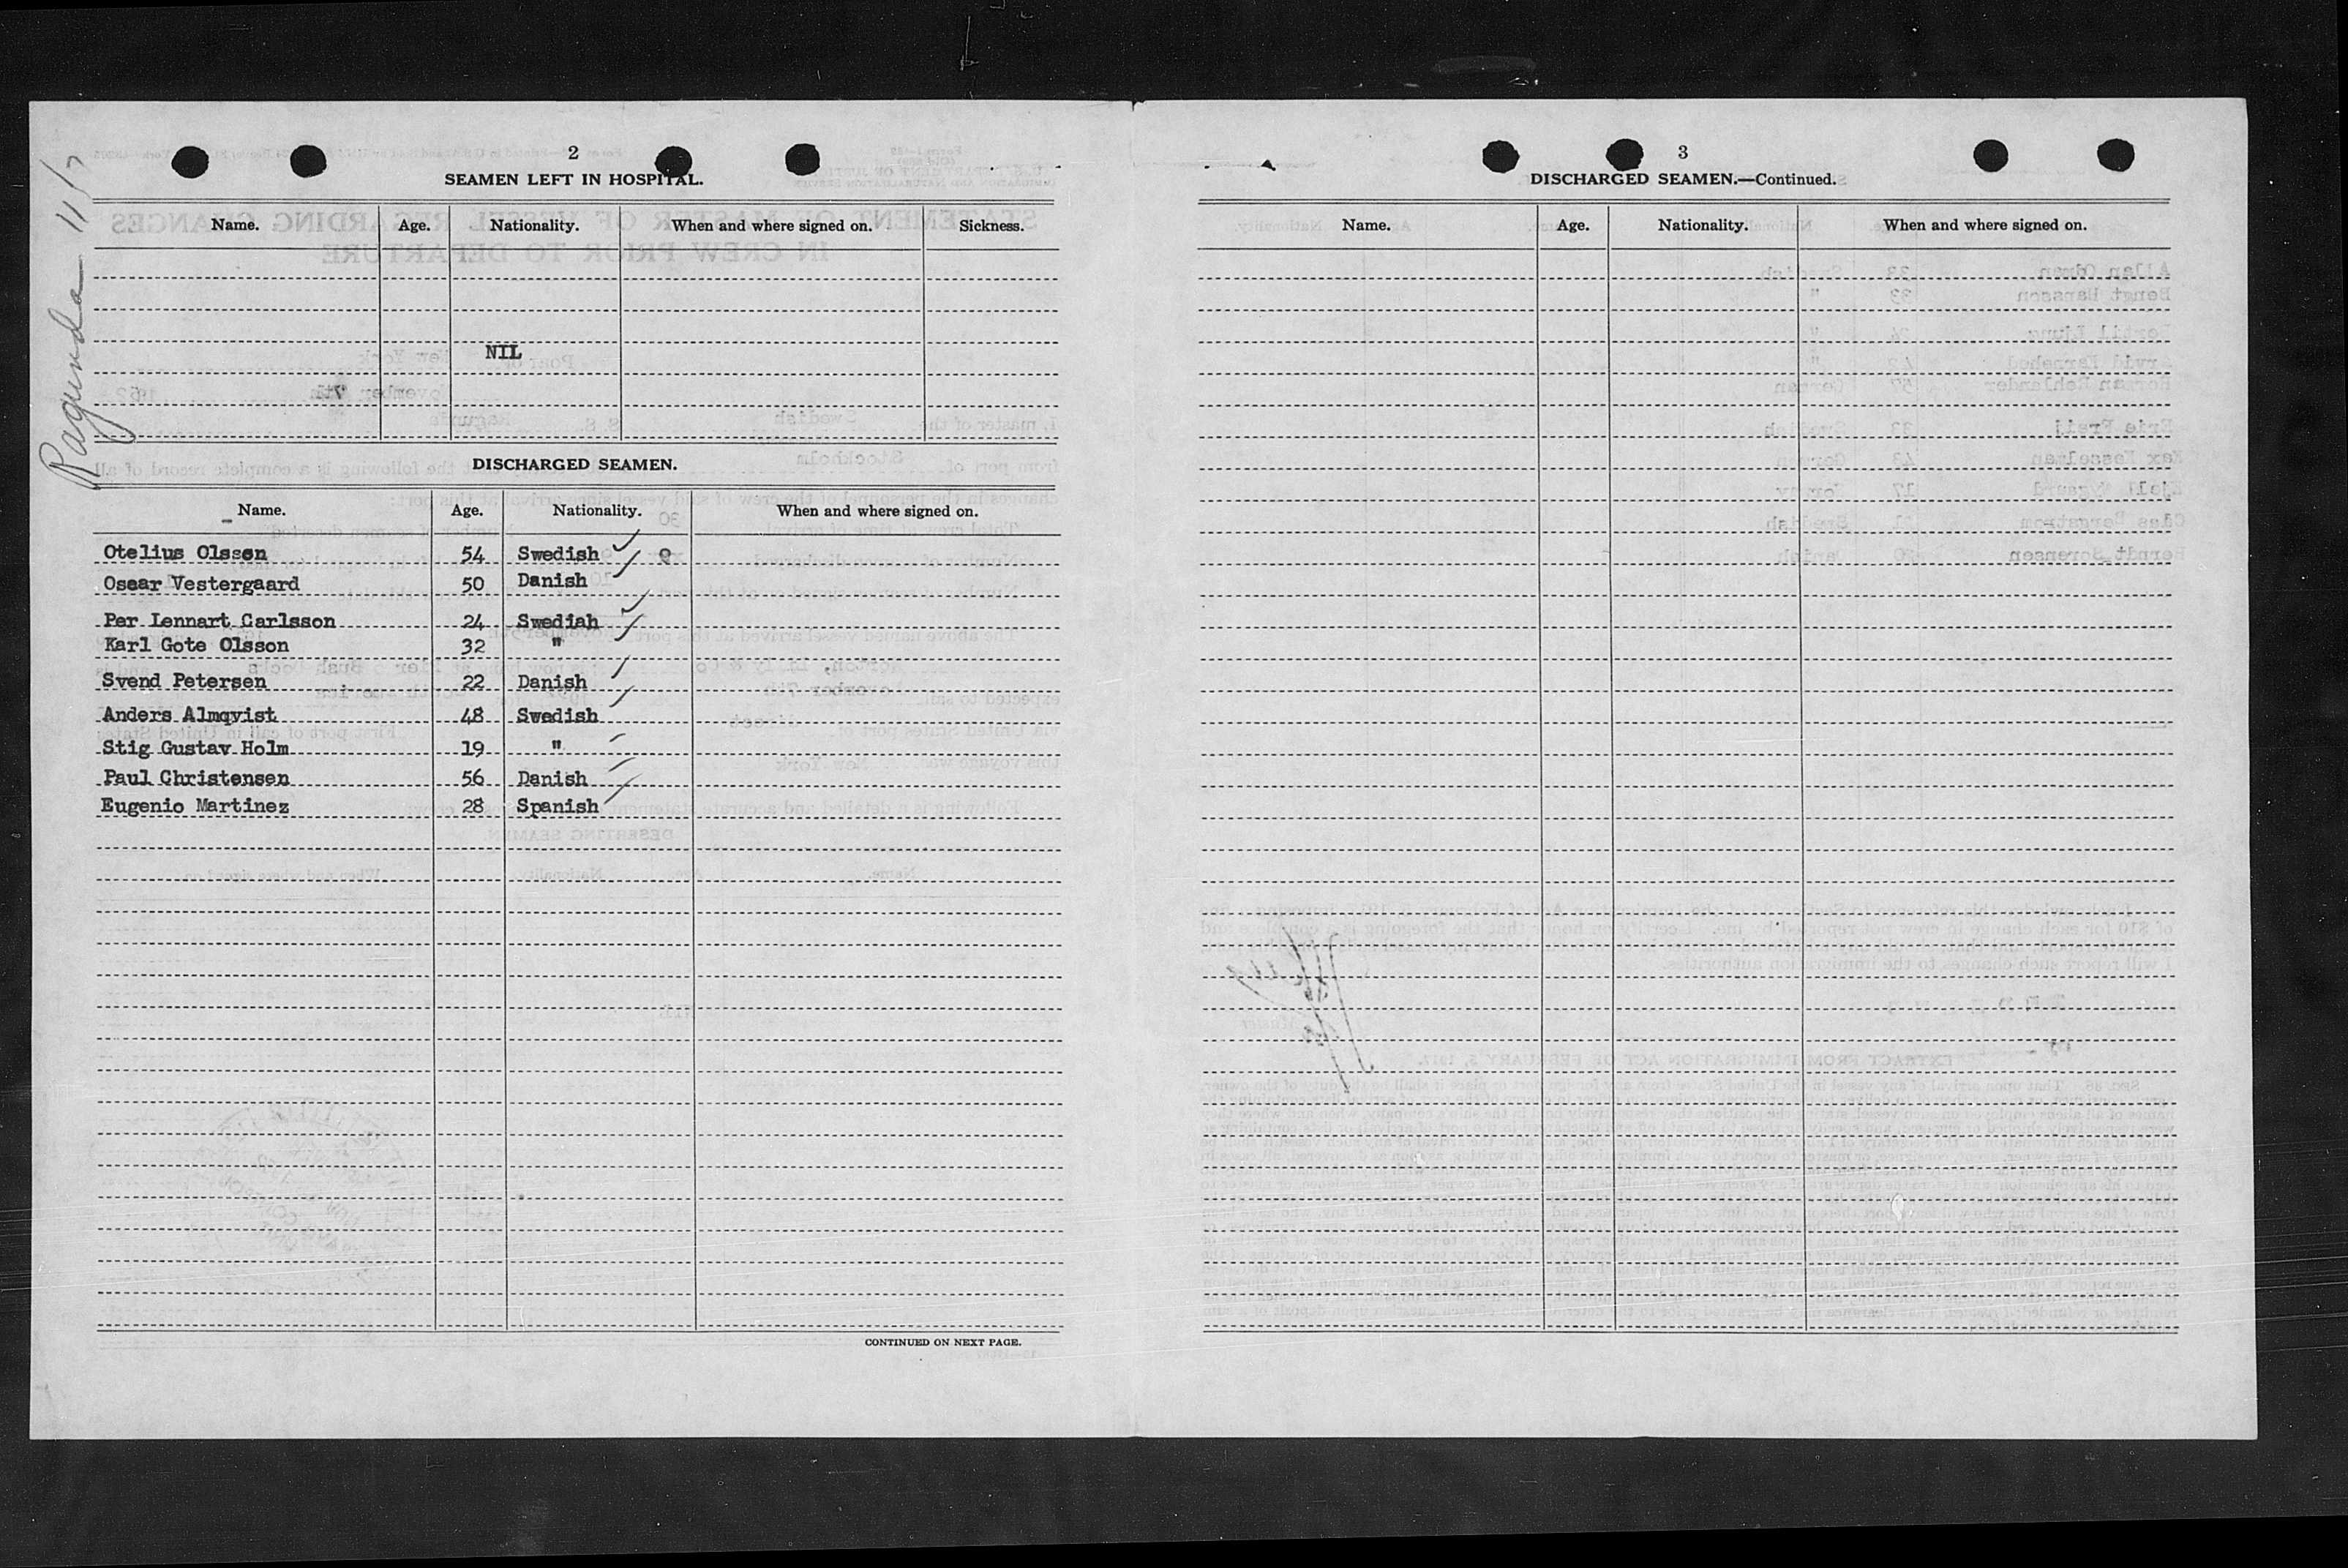 Ragunda 11/7
2
SEAMEN LEFT IN HOSPITAL.
Name. Age. Nationality. When and where signed on. Sickness.
NIL
DISCHARGED SEAMEN.
Name. Age. Nationality. When and where signed on.
Otelius Olssen 54 Swedish 9
Oscar Vestergaard 50 Danish
Per Lennart Carlsson 24 Swedish
Karl Gote Olsson 32 "
Svend Petersen 22 Danish
Anders Almqvist 48 Swedish
Stig Gustav Holm 19 "
Paul Christensen 56 Danish
Eugenio Martinez 28 Spanish
CONTINUED ON NEXT PAGE.
3
DISCHARGED SEAMEN.—Continued.
Name. Age. Nationality. When and where signed on.